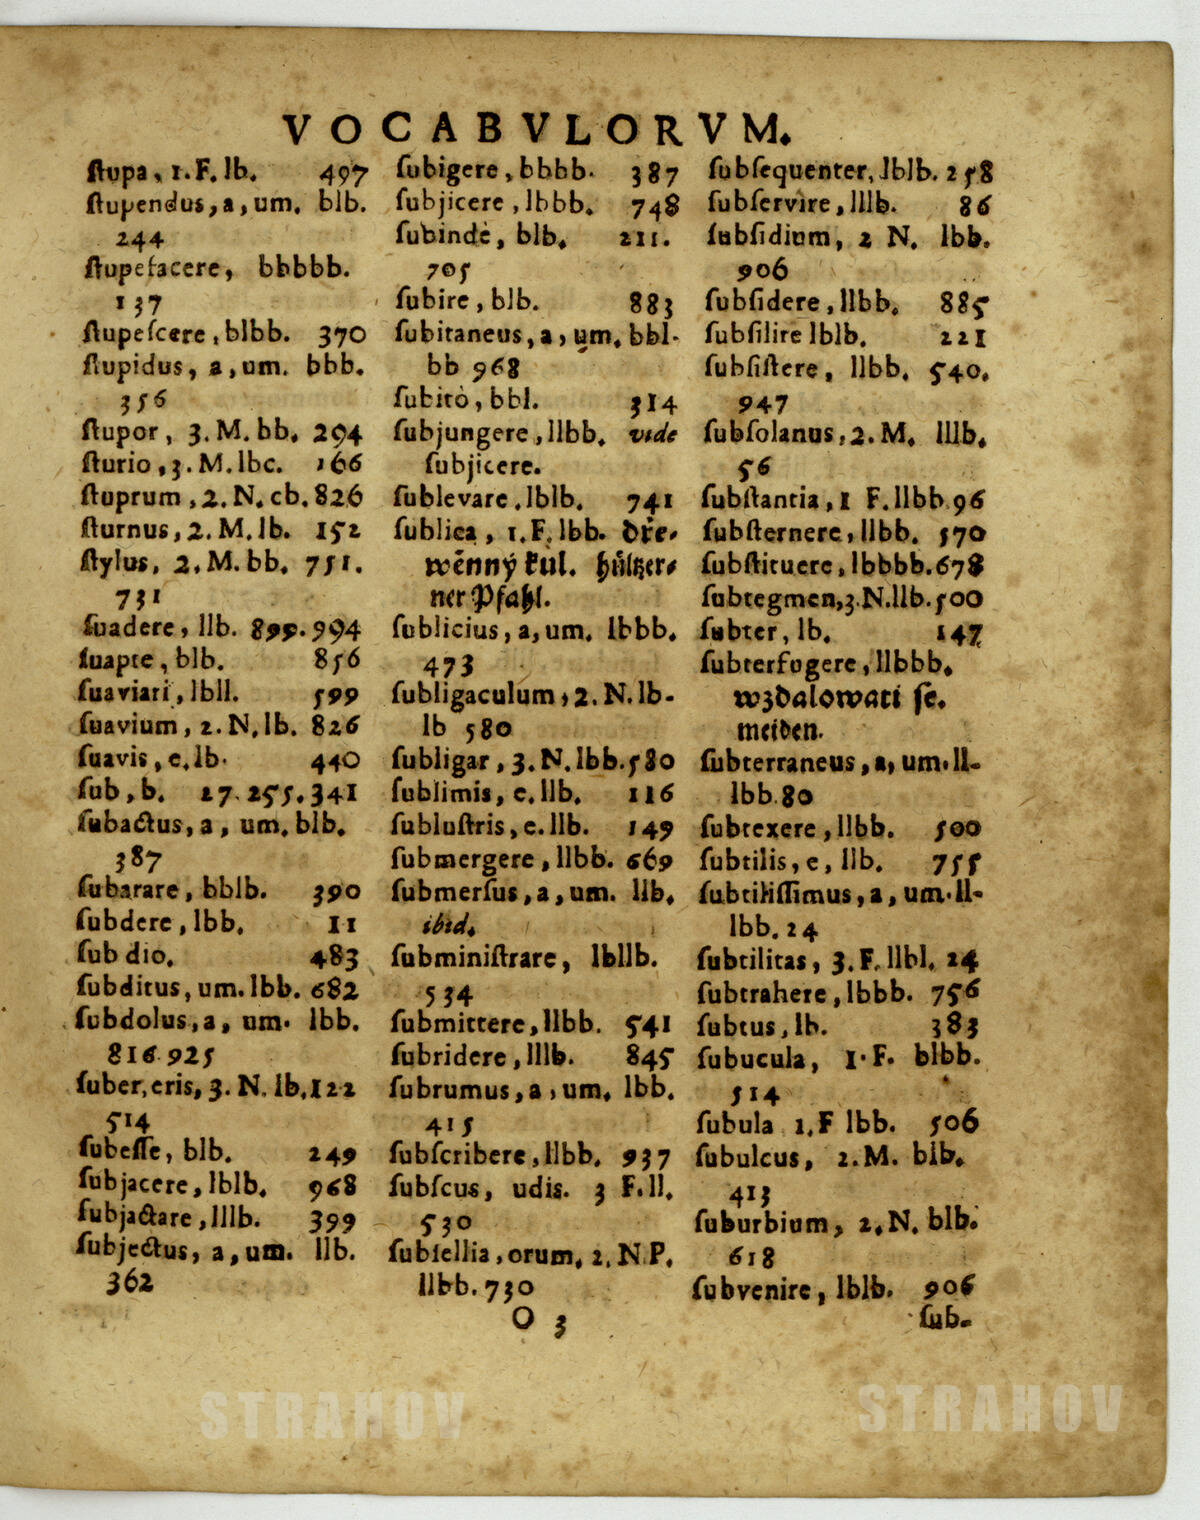 VOCABVLORVM.
ſtupa, 1. F. lb. 497
ſtupendus, a, um. blb.
244
ſtupefacere, bbbbb.
137
ſtupeſcere, blbb. 370
ſtupidus, a, um. bbb.
356
ſtupor, 3. M. bb. 294
ſturio, 3. M. lbc. 166
ſtuprum, 2. N. cb. 826
ſturnus, 2. M. lb. 152
ſtylus, 2. M. bb. 751.
731
ſuadere, llb. 899. 994
ſuapte, blb. 856
ſuaviari, lbll. 599
ſuavium, 2. N. lb. 826
ſuavis, e. lb. 440
ſub, b. 27. 255. 341
ſubactus, a, um. blb.
387
ſubarare, bblb. 390
ſubdere, lbb. 11
ſub dio. 483
ſubditus, um. lbb. 682
ſubdolus, a, um. lbb.
816. 925
ſuber, eris, 3. N. lb. 122
514
ſubeſſe, blb. 249
ſubjacere, lblb. 968
ſubjactare, lllb. 399
ſubjectus, a, um. llb.
362
ſubigere, bbbb. 387
ſubjicere, lbbb. 748
ſubindè, blb. 211.
705
ſubire, blb. 883
ſubitaneus, a, um. bbl-
bb 968
ſubitò, bbl. 314
ſubjungere, llbb. vide
ſubjicere.
ſublevare, lblb. 741
ſublica, 1. F. lbb. dře-
wěnný kůl. hůltzer-
ner Pfahl.
ſublicius, a, um. lbbb.
473
ſubligaculum, 2. N. lb-
lb 580
ſubligar, 3. N. lbb. 580
ſublimis, e. llb. 116
ſubluſtris, e. llb. 149
ſubmergere, llbb. 669
ſubmerſus, a, um. llb.
ibid.
ſubminiſtrare, lbllb.
534
ſubmittere, llbb. 541
ſubridere, lllb. 845
ſubrumus, a, um. lbb.
415
ſubſcribere, llbb. 937
ſubſcus, udis. 3 F. ll.
530
ſubſellia, orum, 2. N. P.
llbb. 730
O 3
ſubſequenter, lblb. 258
ſubſervire, lllb. 86
ſubſidium, 2 N. lbb.
906
ſubſidere, llbb. 885
ſubſilire lblb. 221
ſubſiſtere, llbb. 540.
947
ſubſolanus, 2. M. lllb.
56
ſubſtantia, 1 F. llbb 96
ſubſternere, llbb. 570
ſubſtituere, lbbbb. 678
ſubtegmen, 3. N. llb. 500
ſubter, lb. 147
ſubterfugere, llbbb.
wzdalowati ſe.
meiden.
ſubterraneus, a, um. ll-
lbb. 80
ſubtexere, llbb. 500
ſubtilis, e, llb. 755
ſubtiliſſimus, a, um. ll-
lbb. 24
ſubtilitas, 3. F. llbl. 24
ſubtrahere, lbbb. 756
ſubtus, lb. 383
ſubucula, 1. F. blbb.
514
ſubula 1. F lbb. 506
ſubulcus, 2. M. blb.
413
ſuburbium, 2. N. blb.
618
ſubvenire, lblb. 906
ſub-
STRAHOV STRAHOV